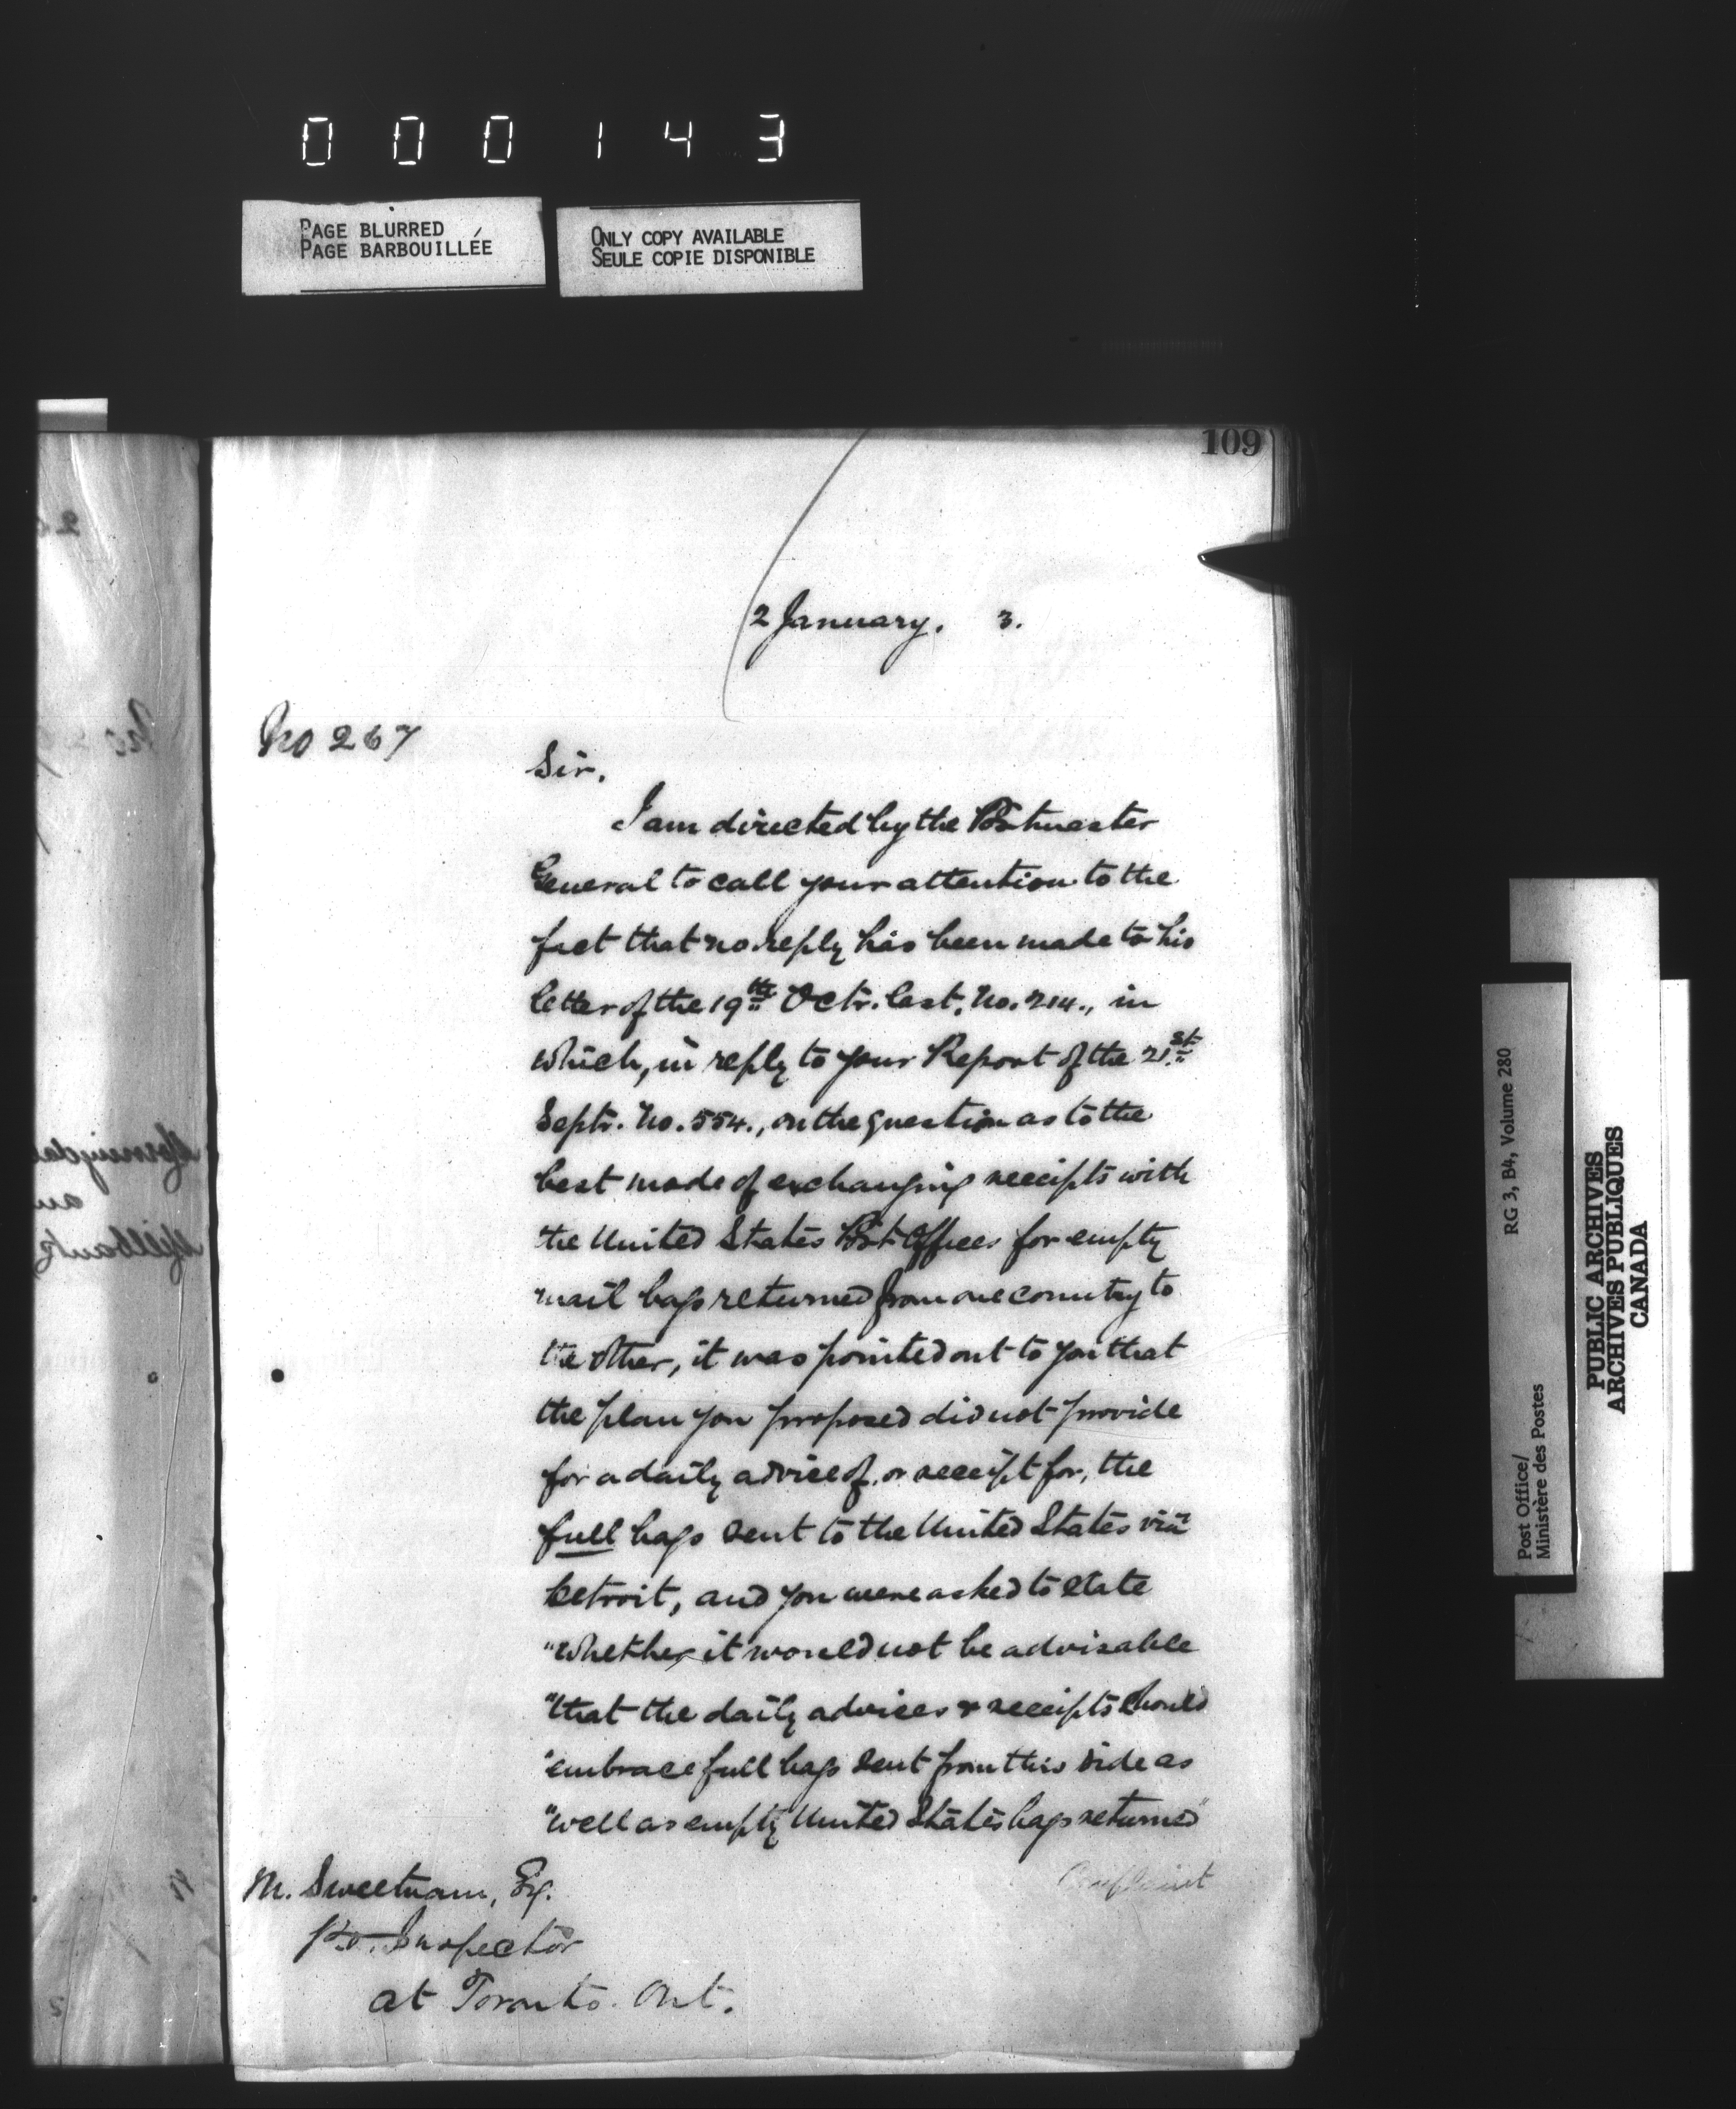 000143
PAGE BLURRED
PAGE BARBOUILLÉE
ONLY COPY AVAILABLE
SEULE COPIE DISPONIBLE
109
2 January. 3.
No 267
Sir.
I am directed by the Postmaster
General to call your attention to the
fact that no reply has been made to his
letter of the 19th Octr. last, No. 214., in
which, in reply to your Report of the 21st
Septr. No. 554., on the question as to the
best mode of exchanging receipts with
the United States Post Offices for empty
mail bags returned from one country to
the other, it was pointed out to you that
the plan you proposed did not provide
for a daily advice of, or receipt for, the
full bags sent to the United States via
Detroit, and you were asked to state
"whether it would not be advisable
"that the daily advices & receipts should
"embrace full bags sent from this side as
"well as empty United States bags returned"
M. Sweetnam, Esq.
P.O. Inspector
at Toronto. Ont.
RG 3, B4, Volume 280
Post Office/
Ministère des Postes
PUBLIC ARCHIVES
ARCHIVES PUBLIQUES
CANADA